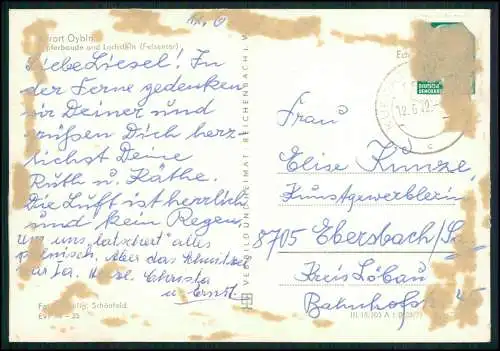 Kurort Oybin
Töpferbaude und Lochstein (Felsentor)
Liebe Liesel! In
der Ferne gedenken
wir Deiner und
grüßen Dich herz
lichst Deine
Ruth u. Käthe.
Die Luft ist herrlich
und kein Regen.
Um uns "latschert" alles
Aber das Schnitzel
war Ia. Herzl. Christa
u. Ernst.
Schönfeld
VERBILDUNG HEIMAT REICHENBACH I. V.
Ech
DEUTSCHE
DEMOKR
12.6.72
c
Frau
Elise Kunze,
Kunstgewerblerin
8705 Ebersbach/Sa.
Kreis Löbau
Bahnhofstr. 45